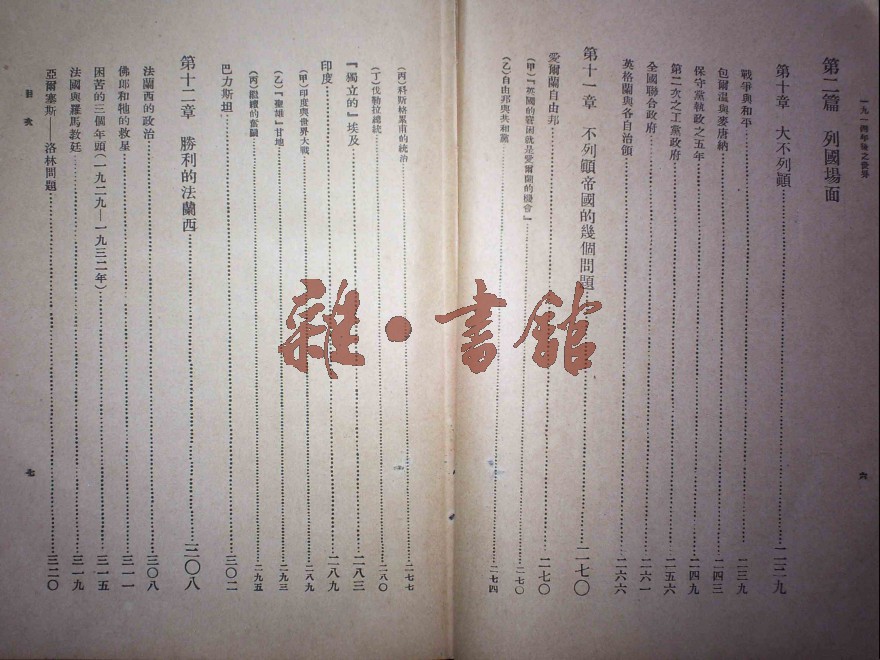 一九一四年後之世界
第二篇 列國場面
第十章 大不列顚……二三九
戰爭與和平……二三九
包爾溫與麥唐納……二四三
保守黨執政之五年……二四九
第二次之工黨政府……二五六
全國聯合政府……二六一
英格蘭與各自治領……二六六
第十一章 不列顚帝國的幾個問題……二七〇
愛爾蘭自由邦……二七〇
(甲)『英國的窘困就是愛爾蘭的機會』……二七〇
(乙)自由邦與共和黨……二七四
六
(丙)科斯格累甫的統治……二七七
(丁)伐勒拉總統……二八〇
『獨立的』埃及……二八三
印度……二八九
(甲)印度與世界大戰……二八九
(乙)『聖雄』甘地……二九三
(丙)繼續的奮鬭……二九五
巴力斯坦……三〇二
第十二章 勝利的法蘭西……三〇八
法蘭西的政治……三〇八
佛郎和牠的救星……三一一
困苦的三個年頭(一九二九—一九三二年)……三一五
法國與羅馬教廷……三一九
亞爾塞斯——洛林問題……三二〇
目次
七
雜·書館